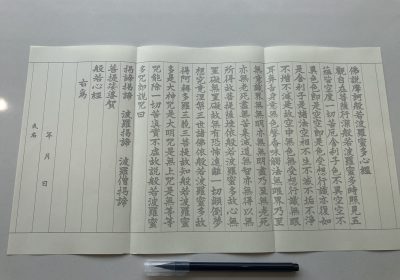 佛說摩訶般若波羅蜜多心經
觀自在菩薩行深般若波羅蜜多時照見五
蘊皆空度一切苦厄舍利子色不異空空不
異色色即是空空即是色受想行識亦復如
是舍利子是諸法空相不生不滅不垢不淨
不增不減是故空中無色無受想行識無眼
耳鼻舌身意無色聲香味觸法無眼界乃至
無意識界無無明亦無無明盡乃至無老死
亦無老死盡無苦集滅道無智亦無得以無
所得故菩提薩埵依般若波羅蜜多故心無
罣礙無罣礙故無有恐怖遠離一切顛倒夢
想究竟涅槃三世諸佛依般若波羅蜜多故
得阿耨多羅三藐三菩提故知般若波羅蜜
多是大神咒是大明咒是無上咒是無等等
咒能除一切苦真實不虛故說般若波羅蜜
多咒即說咒曰
揭諦揭諦 波羅揭諦 波羅僧揭諦
菩提莎婆賀
般若心經
右為
年 月 日
氏名